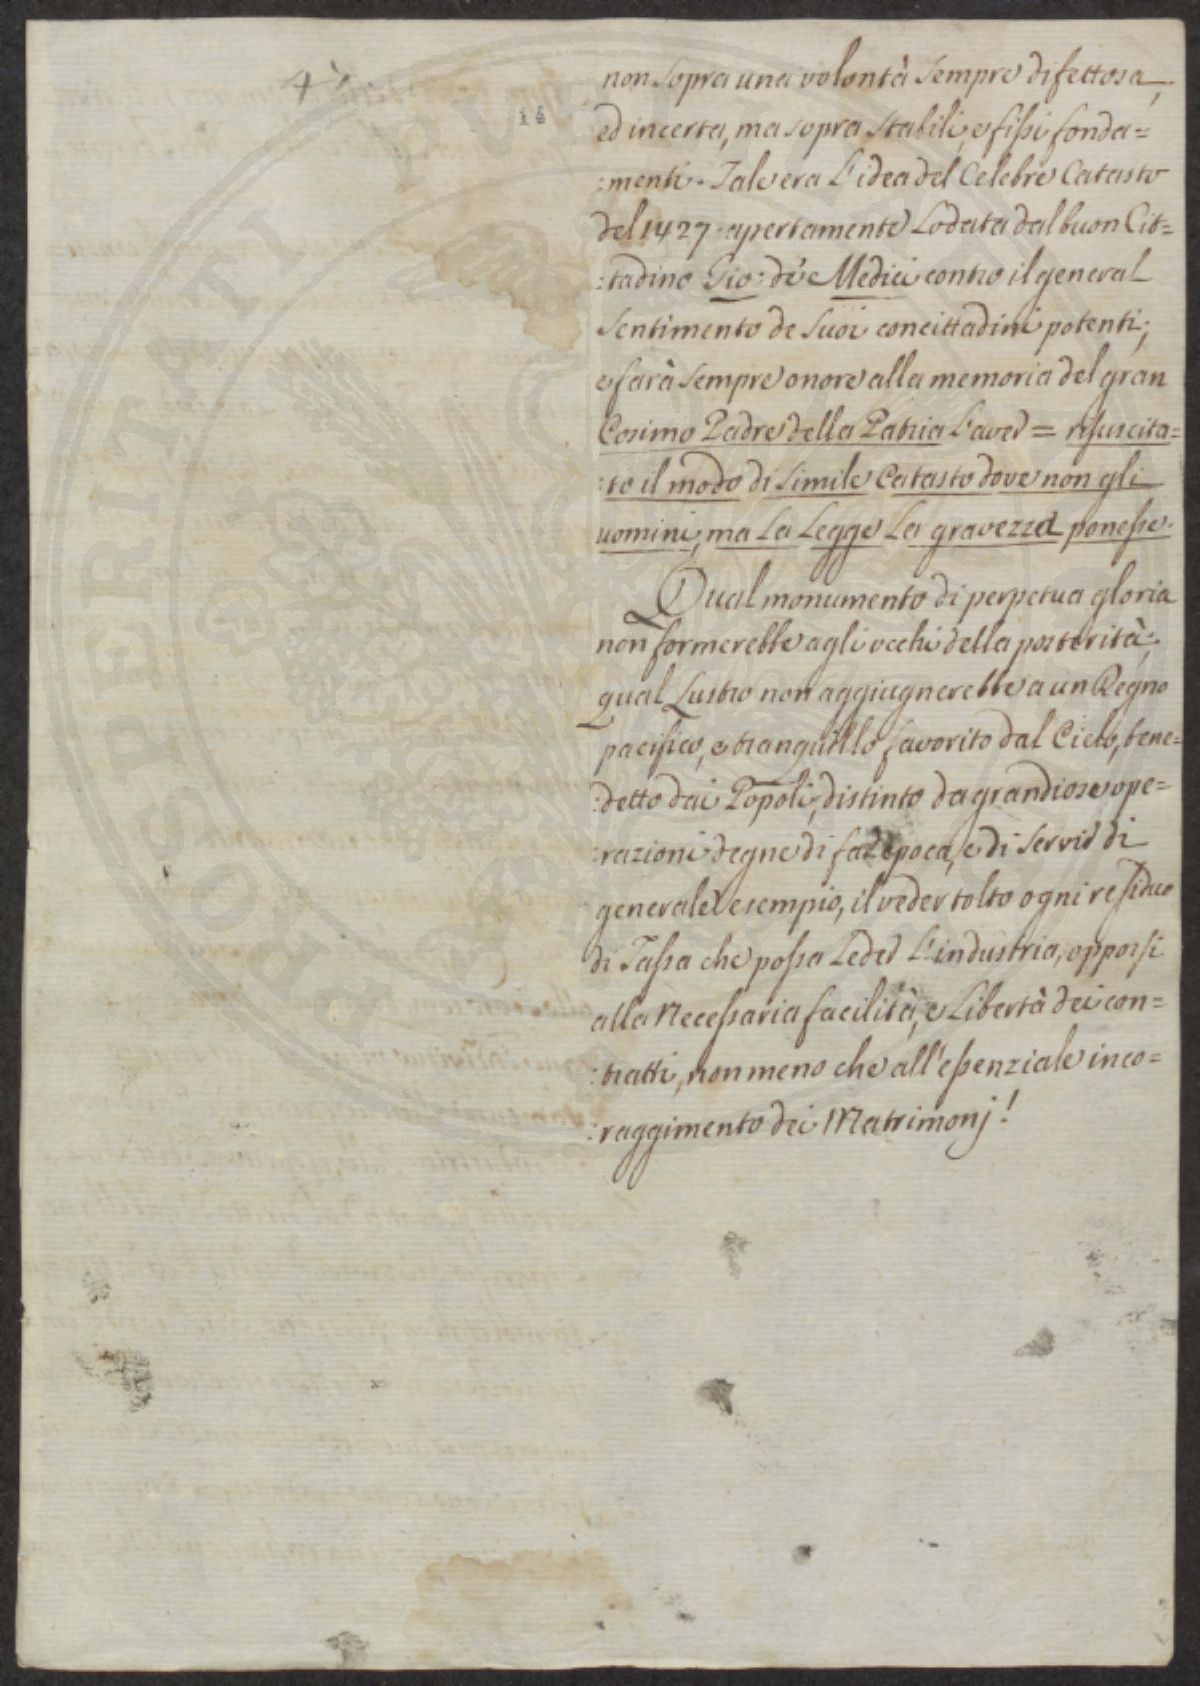 4
14
non sopra una volontà sempre difettosa,
ed incerta, ma sopra stabili, e fissi fonda=
:menti. Tale era L'idea del Celebre Catasto
del 1427. apertamente Lodata dal buon Cit=
:tadino Gio: de' Medici contro il general
sentimento de suoi concittadini potenti;
e farà sempre onore alla memoria del gran
Cosimo Padre della Patria L'aver = risuscita=
:to il modo di simile Catasto dove non gli
uomini, ma La Legge La gravezza ponesse.
Qual monumento di perpetua gloria
non formerebbe agli occhi della posterità;
qual Lustro non aggiugnerebbe a un Regno
pacifico, e tranquillo favorito dal Cielo, bene=
:detto dai Popoli, distinto da grandiose ope=
:razioni degne di far epoca, e di servir di
generale esempio, il veder tolto ogni residuo
di Tassa che possa Leder L'industria, opporsi
alla necessaria facilità, e Libertà dei con=
:tratti, non meno che all'essenziale inco=
:raggimento dei Matrimonj!
PROSPERITATI PUBLICAE